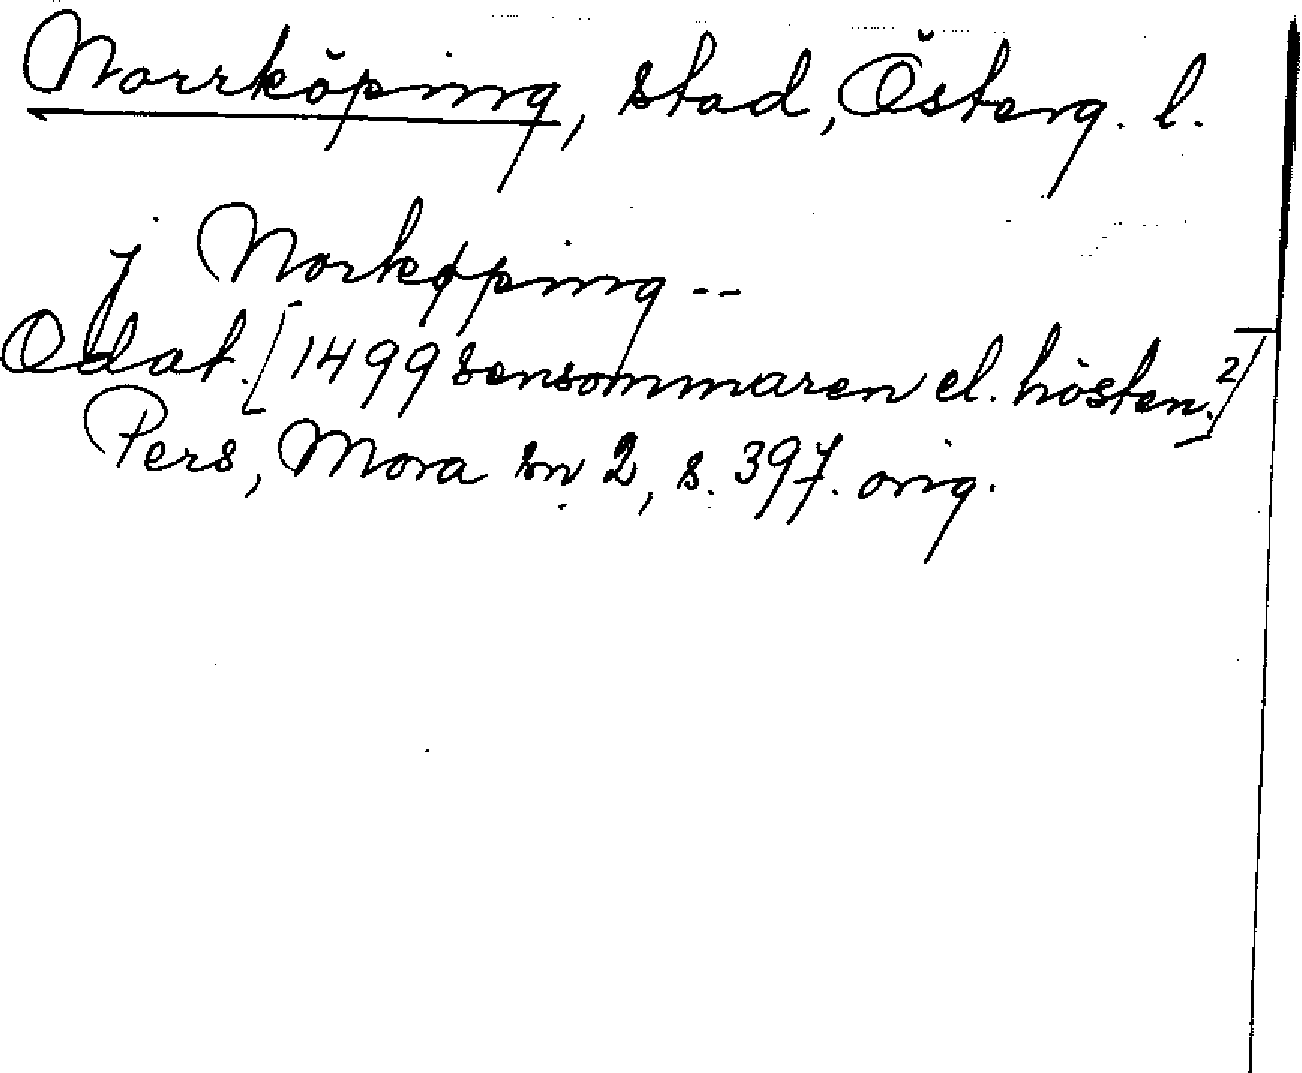 Norrköping, stad, Österg. l.
j Norkøping --
Odat. [1499 sensommaren el. hösten.]²
Pers, Mora sn 2, s. 397. orig.